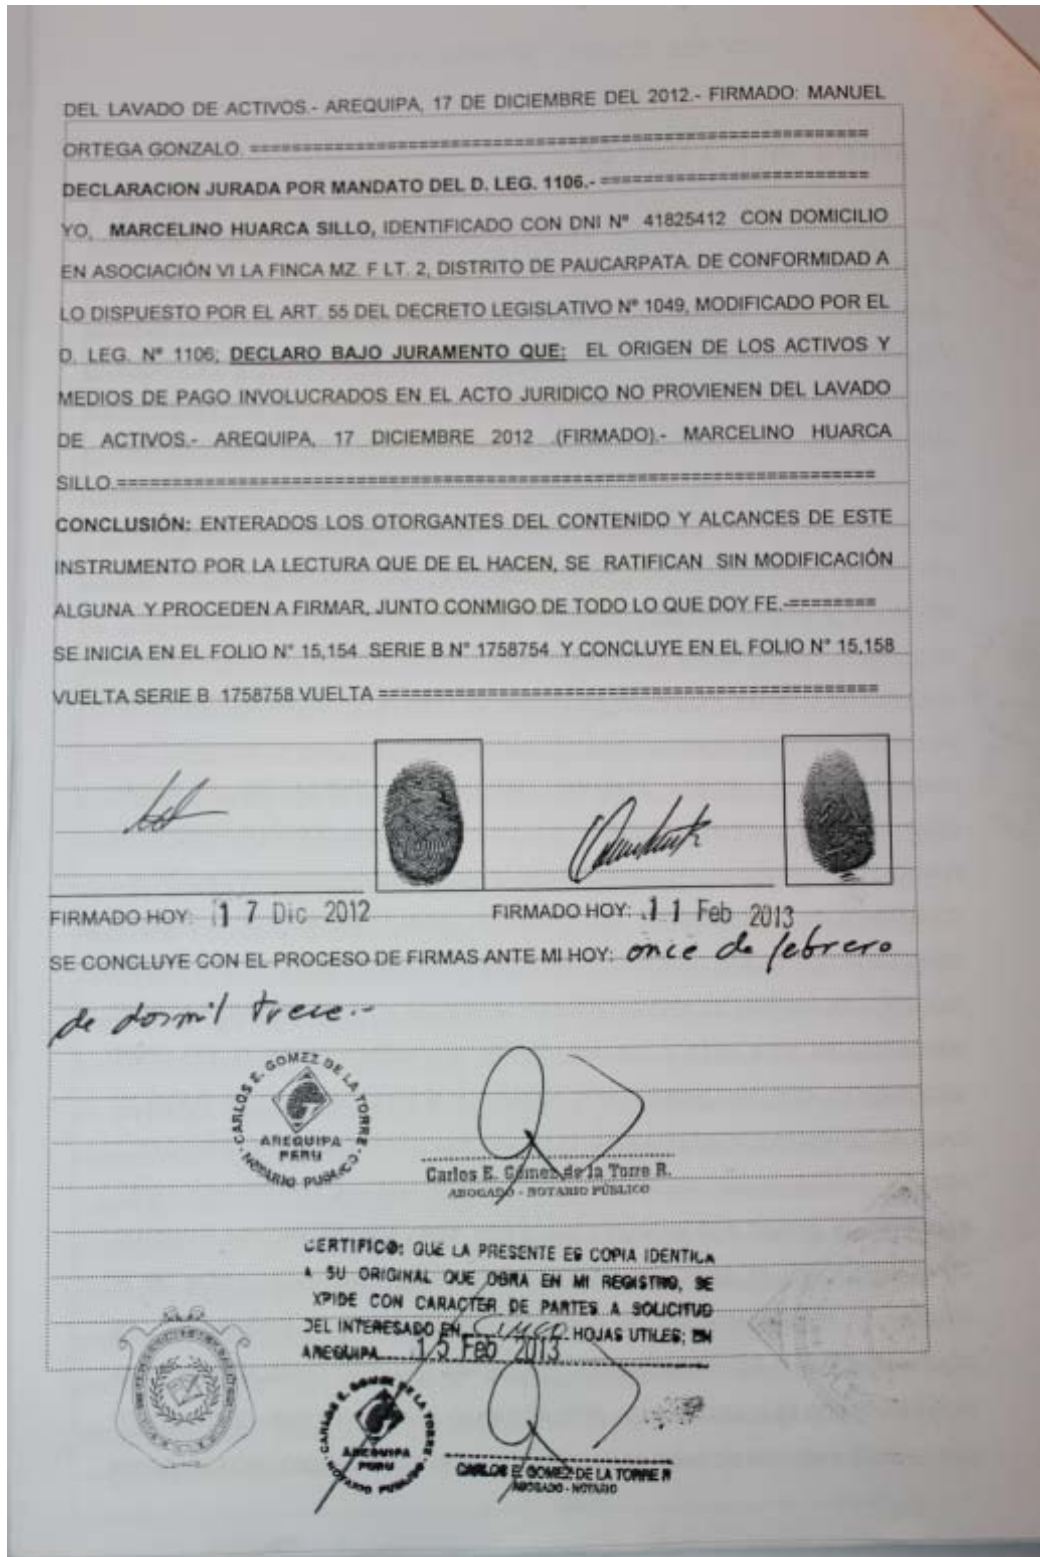 DEL LAVADO DE ACTIVOS.- AREQUIPA, 17 DE DICIEMBRE DEL 2012.- FIRMADO: MANUEL
ORTEGA GONZALO. ====================================================
DECLARACION JURADA POR MANDATO DEL D. LEG. 1106.- ========================
YO, MARCELINO HUARCA SILLO, IDENTIFICADO CON DNI N° 41825412 CON DOMICILIO
EN ASOCIACIÓN VI LA FINCA MZ. F LT. 2, DISTRITO DE PAUCARPATA. DE CONFORMIDAD A
LO DISPUESTO POR EL ART. 55 DEL DECRETO LEGISLATIVO N° 1049, MODIFICADO POR EL
D. LEG. N° 1106; DECLARO BAJO JURAMENTO QUE: EL ORIGEN DE LOS ACTIVOS Y
MEDIOS DE PAGO INVOLUCRADOS EN EL ACTO JURIDICO NO PROVIENEN DEL LAVADO
DE ACTIVOS.- AREQUIPA, 17 DICIEMBRE 2012 (FIRMADO).- MARCELINO HUARCA
SILLO.================================================================
CONCLUSIÓN: ENTERADOS LOS OTORGANTES DEL CONTENIDO Y ALCANCES DE ESTE
INSTRUMENTO POR LA LECTURA QUE DE EL HACEN, SE RATIFICAN SIN MODIFICACIÓN
ALGUNA Y PROCEDEN A FIRMAR, JUNTO CONMIGO DE TODO LO QUE DOY FE.-========
SE INICIA EN EL FOLIO N° 15,154 SERIE B N° 1758754 Y CONCLUYE EN EL FOLIO N° 15,158
VUELTA SERIE B 1758758 VUELTA ==========================================
FIRMADO HOY: 17 Dic 2012 FIRMADO HOY: 11 Feb 2013
SE CONCLUYE CON EL PROCESO DE FIRMAS ANTE MI HOY: once de febrero
de dosmil trece.-
CARLOS E. GOMEZ DE LA TORRE
AREQUIPA
PERU
NOTARIO PUBLICO
Carlos E. Gómez de la Torre R.
ABOGADO - NOTARIO PÚBLICO
CERTIFICO: QUE LA PRESENTE ES COPIA IDENTICA
A SU ORIGINAL QUE OBRA EN MI REGISTRO, SE
XPIDE CON CARACTER DE PARTES A SOLICITUD
DEL INTERESADO EN CINCO HOJAS UTILES; EN
AREQUIPA 15 Feb 2013
CARLOS E. GOMEZ DE LA TORRE
AREQUIPA
PERU
NOTARIO PUBLICO
CARLOS E. GOMEZ DE LA TORRE R
ABOGADO - NOTARIO